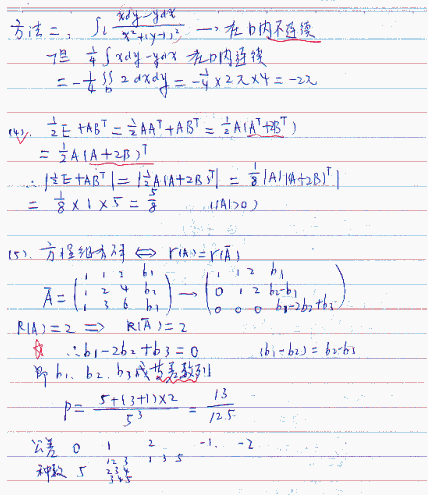 方法二, ∫L (xdy-ydx)/(x²+(y-1)²) → 在D内不连续
但 1/4 ∫ xdy-ydx 在D内连续
= -1/4 ∬D 2dxdy = -1/4 × 2π × 4 = -2π
(4). 1/2 E + AB^T = 1/2 AA^T + AB^T = 1/2 A(A^T+2B^T)
= 1/2 A(A+2B)^T
∴ |1/2 E + AB^T| = |1/2 A(A+2B)^T| = 1/8 |A| |(A+2B)^T|
= 1/8 × 1 × 5 = 5/8 (|A|>0)
(5). 方程组有解 ⟺ r(A)=r(Ā)
Ā = (1 1 2 b1; 1 2 4 b2; 1 3 6 b3) → (1 1 2 b1; 0 1 2 b2-b1; 0 0 0 b1-2b2+b3)
R(A)=2 ⟹ R(Ā)=2
☆ ∴ b1-2b2+b3=0 (b1-b2)=b2-b3
即 b1、b2、b3成等差数列
P = (5+(3+1)×2)/5³ = 13/125
公差 0 1 2 -1 -2
种数 5 123 234 345 135